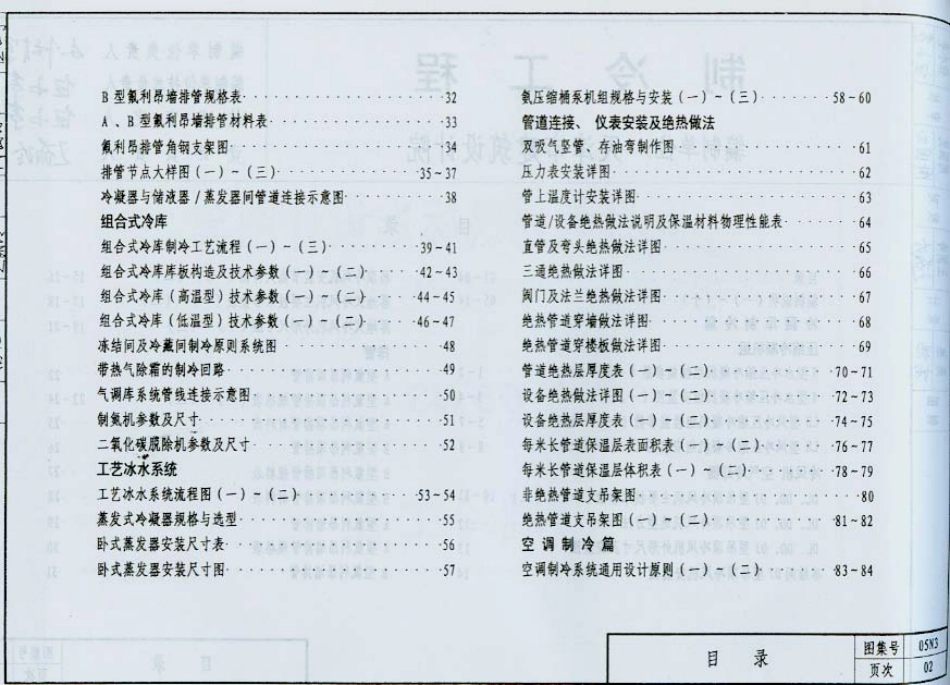 B 型氟利昂墙排管规格表 32
A 、B 型氟利昂墙排管材料表 33
氟利昂排管角钢支架图 34
排管节点大样图(一)~(三) 35~37
冷凝器与储液器/蒸发器间管道连接示意图 38
组合式冷库
组合式冷库制冷工艺流程(一)~(三) 39~41
组合式冷库库板构造及技术参数(一)~(二) 42~43
组合式冷库(高温型)技术参数(一)~(二) 44~45
组合式冷库(低温型)技术参数(一)~(二) 46~47
冻结间及冷藏间制冷原则系统图 48
带热气除霜的制冷回路 49
气调库系统管线连接示意图 50
制氮机参数及尺寸 51
二氧化碳脱除机参数及尺寸 52
工艺冰水系统
工艺冰水系统流程图(一)~(二) 53~54
蒸发式冷凝器规格与选型 55
卧式蒸发器安装尺寸表 56
卧式蒸发器安装尺寸图 57
氨压缩桶泵机组规格与安装(一)~(三) 58~60
管道连接、仪表安装及绝热做法
双吸气竖管、存油弯制作图 61
压力表安装详图 62
管上温度计安装详图 63
管道/设备绝热做法说明及保温材料物理性能表 64
直管及弯头绝热做法详图 65
三通绝热做法详图 66
阀门及法兰绝热做法详图 67
绝热管道穿墙做法详图 68
绝热管道穿楼板做法详图 69
管道绝热层厚度表(一)~(二) 70~71
设备绝热做法详图(一)~(二) 72~73
设备绝热层厚度表(一)~(二) 74~75
每米长管道保温层表面积表(一)~(二) 76~77
每米长管道保温层体积表(一)~(二) 78~79
非绝热管道支吊架图 80
绝热管道支吊架图(一)~(二) 81~82
空调制冷篇
空调制冷系统通用设计原则(一)~(二) 83~84
目 录
图集号 05N3
页次 02